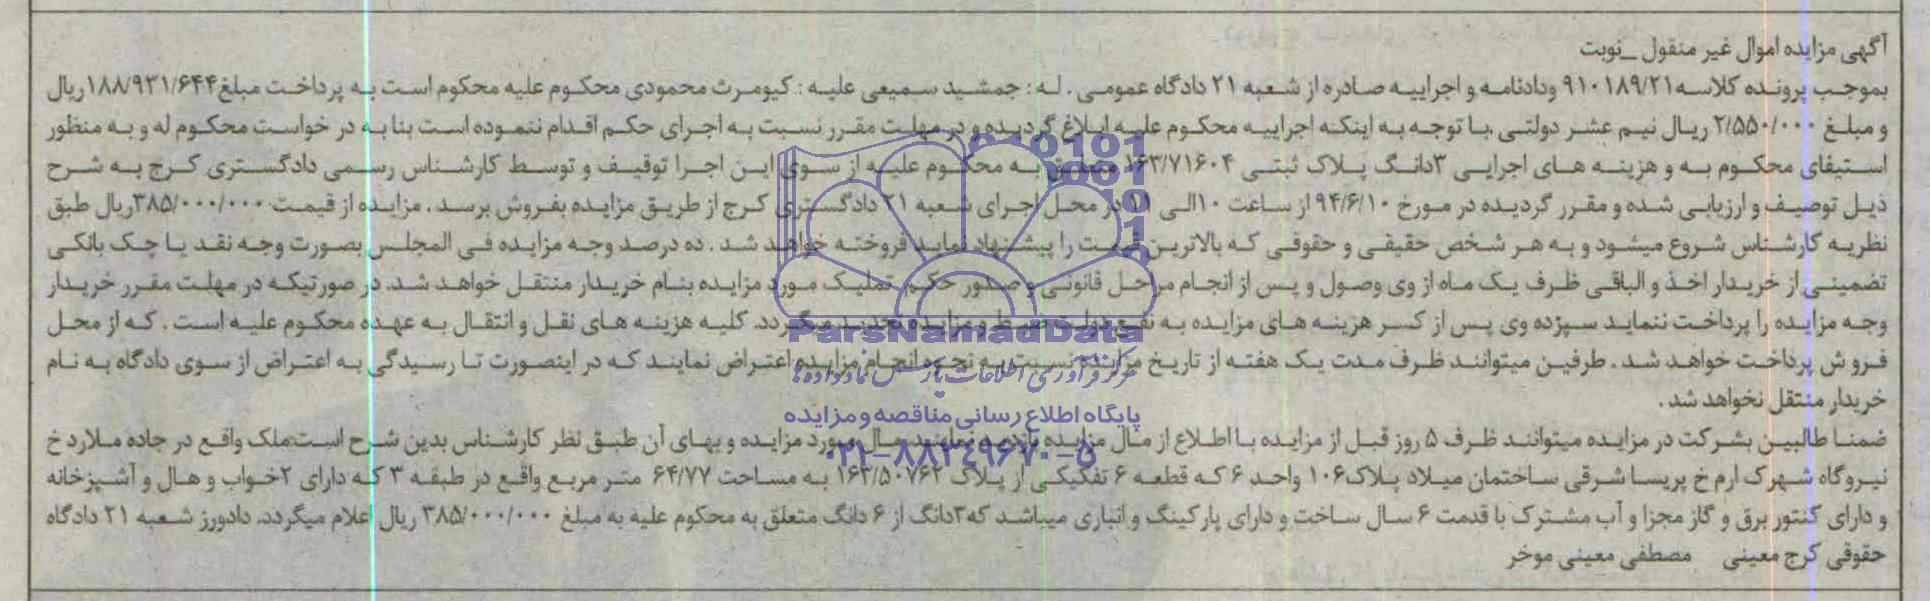 آگهی مزایده اموال غیر منقول _نوبت
بموجب پرونده کلاسه ۹۱۰۱۸۹/۲۱ ودادنامه و اجراییه صادره از شعبه ۲۱ دادگاه عمومی . له : جمشید سمیعی علیه : کیومرث محمودی محکوم علیه محکوم است به پرداخت مبلغ ۱۸۸/۹۳۱/۶۴۴ریال
و مبلغ ۲/۵۵۰/۰۰۰ ریال نیم عشر دولتی .با توجه به اینکه اجراییه محکوم علیه ابلاغ گردیده و در مهلت مقرر نسبت به اجرای حکم اقدام ننموده است بنا به در خواست محکوم له و به منظور
استیفای محکوم به و هزینه های اجرایی ۳دانگ پلاک ثبتی ۱۶۳/۷۱۶۰۴ متعلق به محکوم علیه از سوی این اجرا توقیف و توسط کارشناس رسمی دادگستری کرج به شرح
ذیل توصیف و ارزیابی شده و مقرر گردیده در مورخ ۹۴/۶/۱۰ از ساعت ۱۰الی ۱۱ در محل اجرای شعبه ۲۱ دادگستری کرج از طریق مزایده بفروش برسد . مزایده از قیمت ۳۸۵/۰۰۰/۰۰۰ریال طبق
نظریه کارشناس شروع میشود و به هر شخص حقیقی و حقوقی که بالاترین قیمت را پیشنهاد نماید فروخته خواهد شد . ده درصد وجه مزایده فی المجلس بصورت وجه نقد یا چک بانکی
تضمینی از خریدار اخذ و الباقی ظرف یک ماه از وی وصول و پس از انجام مراحل قانونی و صدور حکم تملیک مورد مزایده بنام خریدار منتقل خواهد شد. در صورتیکه در مهلت مقرر خریدار
وجه مزایده را پرداخت ننماید سپرده وی پس از کسر هزینه های مزایده به نفع دولت ضبط و مزایده تجدید میگردد. کلیه هزینه های نقل و انتقال به عهده محکوم علیه است . که از محل
فروش پرداخت خواهد شد . طرفین میتوانند ظرف مدت یک هفته از تاریخ مزایده نسبت به نحوه انجام مزایده اعتراض نمایند که در اینصورت تا رسیدگی به اعتراض از سوی دادگاه به نام
خریدار منتقل نخواهد شد .
ضمنا طالبین بشرکت در مزایده میتوانند ظرف ۵ روز قبل از مزایده با اطلاع از مال مزایده بازدید نمایند. مال مورد مزایده و بهای آن طبق نظر کارشناس بدین شرح است:ملک واقع در جاده ملارد خ
نیروگاه شهرک ارم خ پریسا شرقی ساختمان میلاد پلاک۱۰۶ واحد ۶ که قطعه ۶ تفکیکی از پلاک ۱۶۳/۵۰۷۶۲ به مساحت ۶۴/۷۷ متر مربع واقع در طبقه ۳ که دارای ۲خواب و هال و آشپزخانه
و دارای کنتور برق و گاز مجزا و آب مشترک با قدمت ۶ سال ساخت و دارای پارکینگ و انباری میباشد که۳دانگ از ۶ دانگ متعلق به محکوم علیه به مبلغ ۳۸۵/۰۰۰/۰۰۰ ریال اعلام میگردد. دادورز شعبه ۲۱ دادگاه
حقوقی کرج معینی مصطفی معینی موخر
ParsNamadData
مرکز فرآوری اطلاعات پارس نماد داده ها
پایگاه اطلاع رسانی مناقصه و مزایده
۰۲۱-۸۸۳۴۹۶۷۰-۵